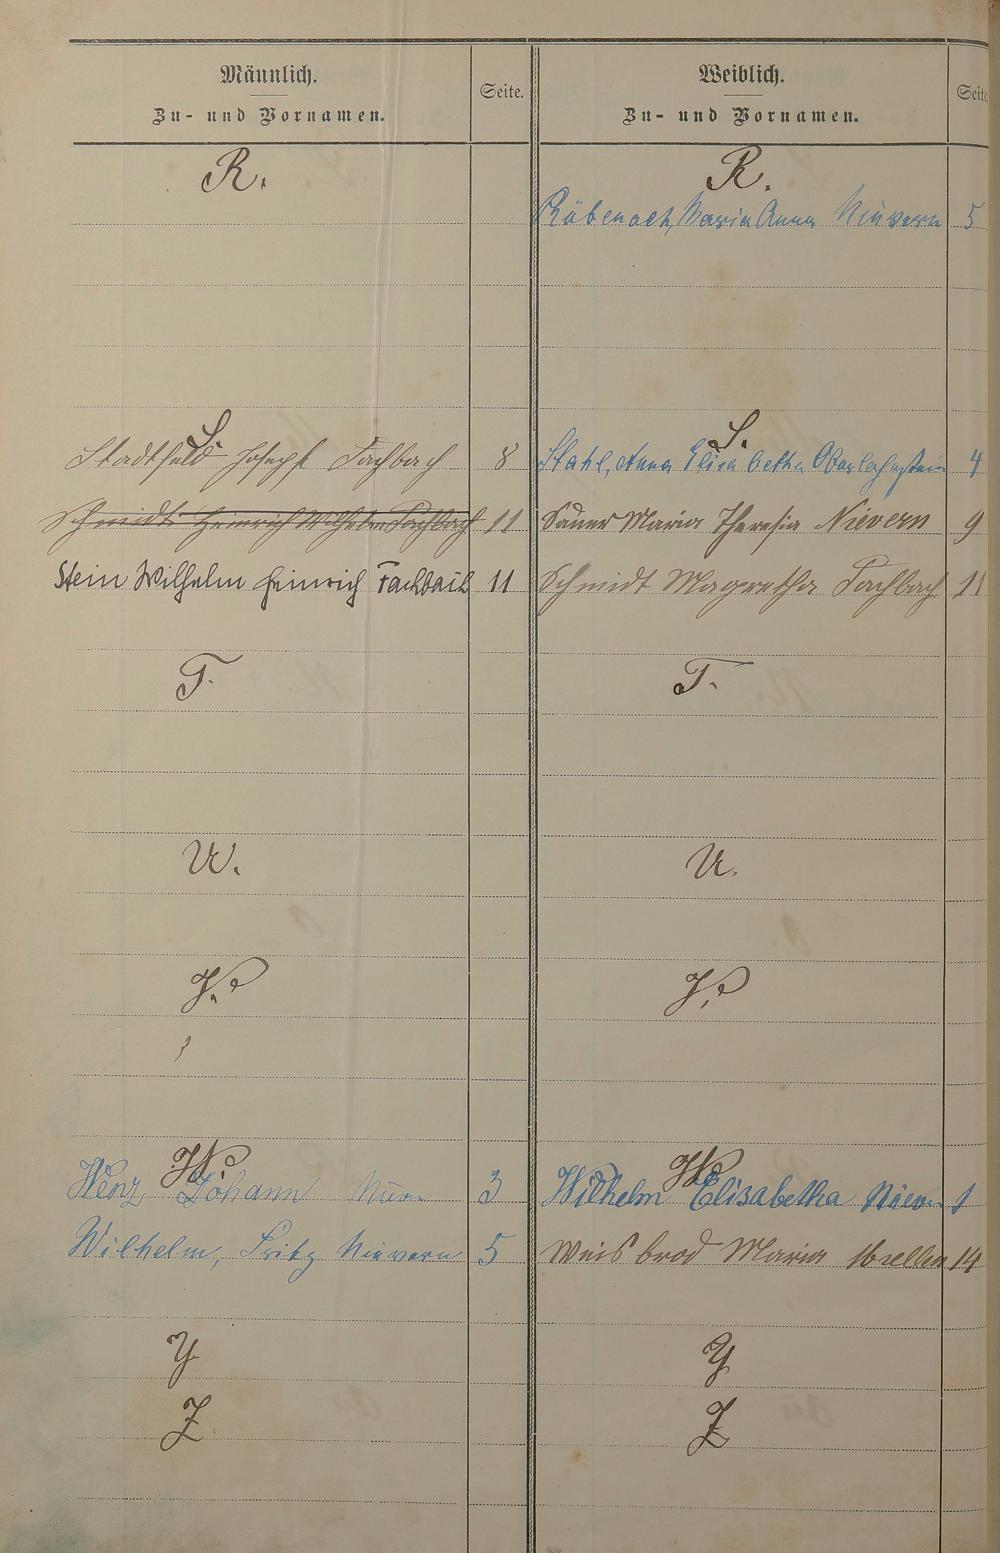 Männlich.
Zu- und Vornamen.
Seite.
R.
S.
Stadtfeld Joseph Fachbach 8
Schmidt Heinrich Wilhelm Fachbach 11
Stein Wilhelm Heinrich Fachbach 11
T.
U.
V.
W.
Wenz, Johann 3
Wilhelm, Fritz Nievern 5
Y
Z.
Weiblich.
Zu- und Vornamen.
Seite
R.
Räbenach, Maria Anna Nievern 5
S.
Stahl, Anna Elisabetha Oberlahnstein 4
Sauer Maria Theresia Nievern 9
Schmidt Magretha Fachbach 11
T.
U.
V.
W.
Wilhelm Elisabetha Nievern 1
Weisbrod Maria 14
Y
Z